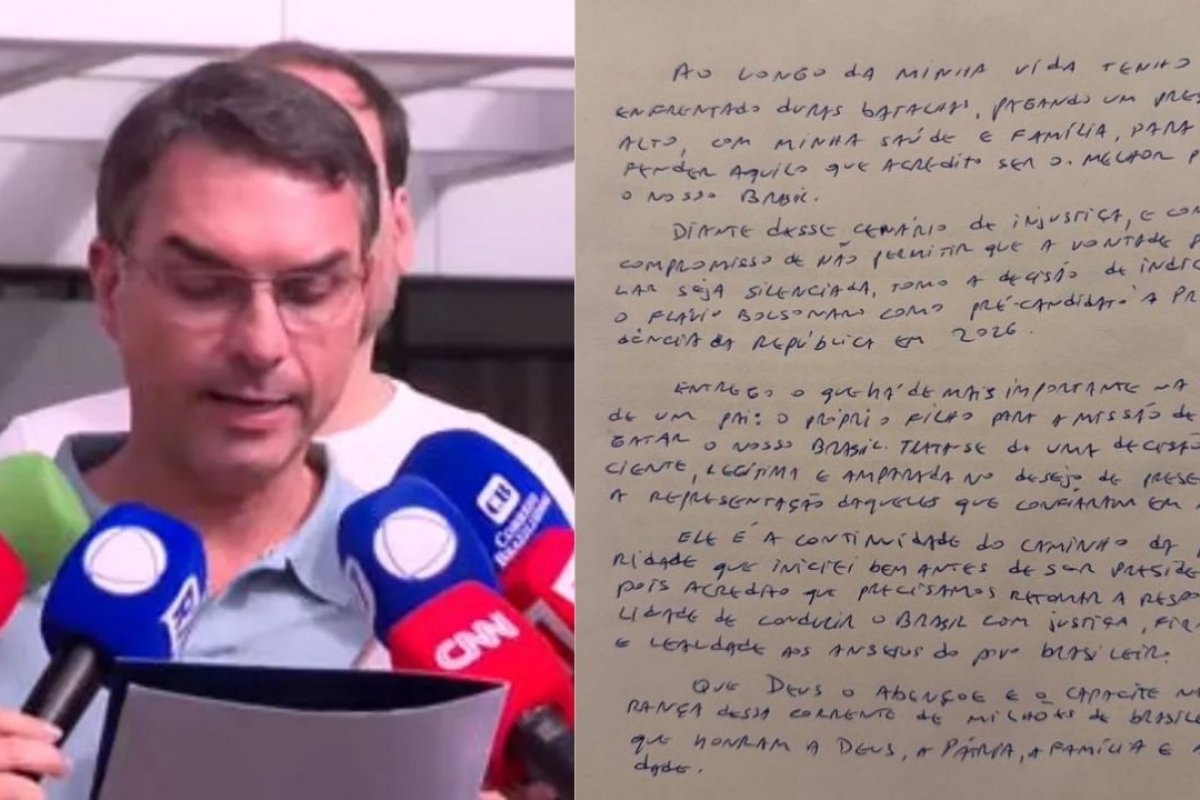 CB
CORREIO BRAZILIENSE
CNN
AO LONGO DA MINHA VIDA TENHO
ENFRENTADO DURAS BATALHAS, PAGANDO UM PRE
ALTO, COM MINHA SAÚDE E FAMÍLIA, PARA
FENDER AQUILO QUE ACREDITO SER O MELHOR P
O NOSSO BRASIL.
DIANTE DESSE CENÁRIO DE INJUSTIÇA, E COM
COMPROMISSO DE NÃO PERMITIR QUE A VONTADE P
LAR SEJA SILENCIADA, TOMO A DECISÃO DE INDIC
O FLÁVIO BOLSONARO COMO PRÉ-CANDIDATO À PR
DÊNCIA DA REPÚBLICA EM 2026.
ENTREGO O QUE HÁ DE MAIS IMPORTANTE NA
DE UM PAI: O PRÓPRIO FILHO PARA A MISSÃO DE
GATAR O NOSSO BRASIL. TRATA-SE DE UMA DECISÃO
CIENTE, LEGÍTIMA E AMPARADA NO DESEJO DE PRESE
A REPRESENTAÇÃO DAQUELES QUE CONFIARAM EM
ELE É A CONTINUIDADE DO CAMINHO DA
RIDADE QUE INICIEI BEM ANTES DE SER PRESIDE
POIS ACREDITO QUE PRECISAMOS RETOMAR A RESPO
LIDADE DE CONDUZIR O BRASIL COM JUSTIÇA, FIR
E LEALDADE AOS ANSEIOS DO POVO BRASILEIRO.
QUE DEUS O ABENÇOE E O CAPACITE NA
RANÇA DESSA CORRENTE DE MILHÕES DE BRASILE
QUE HONRAM A DEUS, A PÁTRIA, A FAMÍLIA E A
DADE.